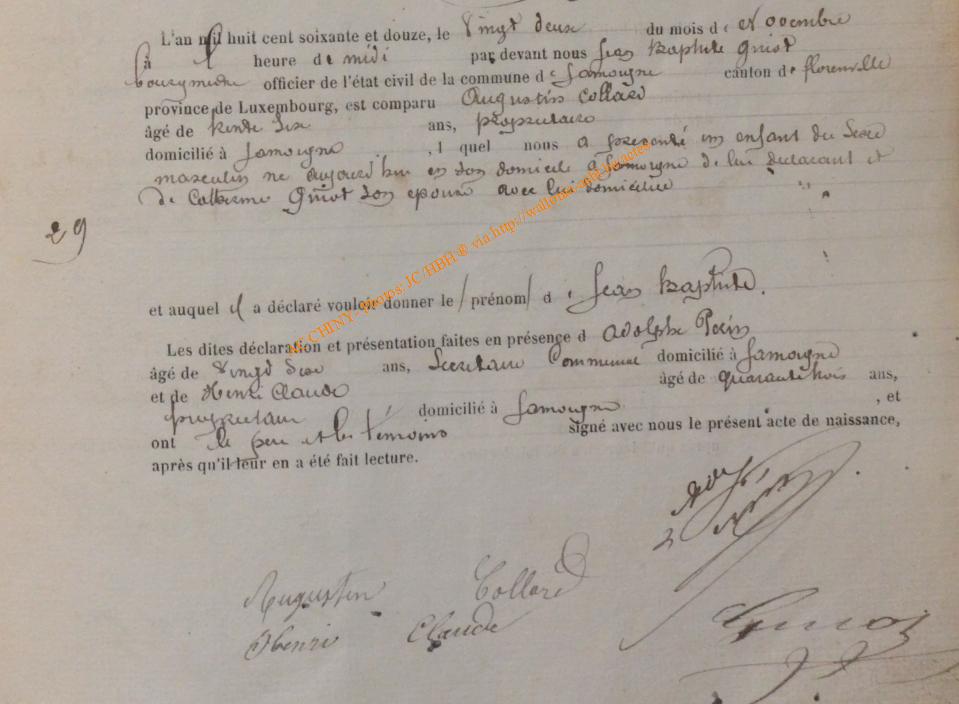 L'an mil huit cent soixante et douze, le Vingt deux du mois de Novembre
à heure de midi par devant nous Jean Baptiste Guiot
bourgmestre officier de l'état civil de la commune de Jamoigne canton de florenville
province de Luxembourg, est comparu Augustin Collard
âgé de trente six ans, proprietaire
domicilié à Jamoigne, lequel nous a presenté un enfant du Sexe
masculin né aujourd'hui en son domicile à Jamoigne de lui declarant et
de Catherine Guiot son epouse avec lui domiciliée
29
et auquel il a déclaré vouloir donner le /prénom/ de Jean Baptiste.
Les dites déclaration et présentation faites en présence d adolphe Perin
âgé de Vingt Six ans, Secretaire Communal domicilié à Jamoigne
et de Henri Claude âgé de quarante trois ans,
proprietaire, domicilié à Jamoigne, et
ont le pere et les témoins signé avec nous le présent acte de naissance,
après qu'il leur en a été fait lecture.
CHINY - photos: JC/HBH @ via http://wallonia-asbl.be/actes
Augustin Collard
Henri Claude
Guiot